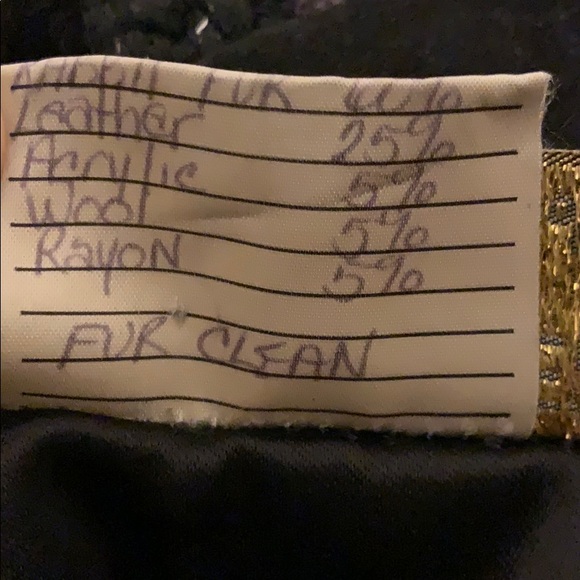 FUR 60%
Leather 25%
Acrylic 5%
Wool 5%
Rayon 5%
FUR CLEAN